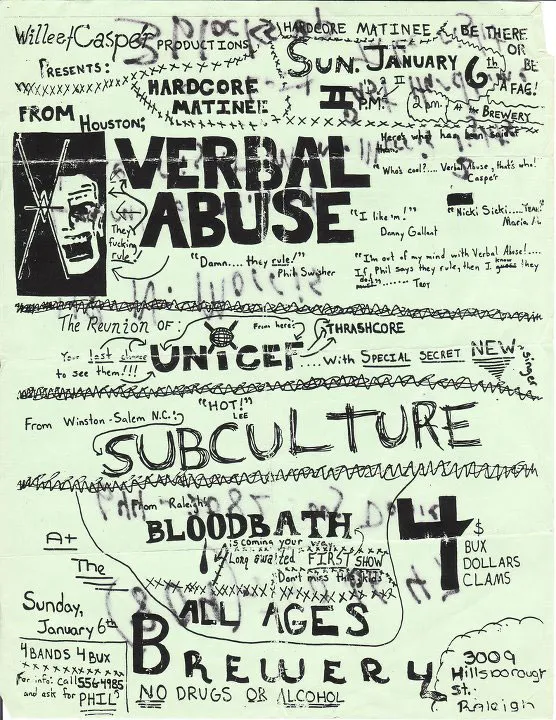 Willeet Casper
PRODUCTIONS
PRESENTS:
HARDCORE MATINEE
BE THERE
OR
BE
A FAG!
SUN. JANUARY 6th
II P.M.
2 p.m.
BREWERY
HARDCORE
MATINEE
FROM
HOUSTON;
VERBAL
ABUSE
They
fucking
rule
"Damn.... they rule!"
Phil Swisher
Here's what has been said
"Who's cool?.... Verbal Abuse, that's who!
Casper
"I like 'm!"
Danny Gallant
"Nicki Sicki.....YEAH!"
Maria
"I'm out of my mind with Verbal Abuse!....
If Phil says they rule, then I know they
do!"........ Troy
The Reunion OF:
Your last chance
to see them!!!
UNICEF
From here:
THRASHCORE
....With SPECIAL SECRET NEW
Singer
From Winston-Salem N.C.:
"HOT!"
LEE
SUBCULTURE
From Raleigh:
BLOODBATH
is coming your way.
Long awaited FIRST SHOW
Don't miss this, kids
4 $
BUX
DOLLARS
CLAMS
At
The
ALL AGES
BREWERY
Sunday,
January 6th
4 BANDS 4 BUX
For info: call 556-4985
and ask for PHIL
NO DRUGS OR ALCOHOL
3009
Hillsborough
St.
Raleigh